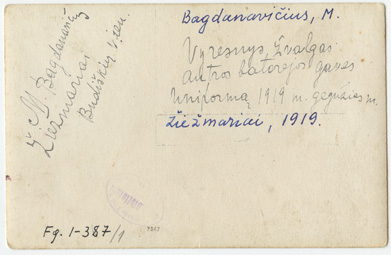 Bagdanavičius, M.
Vyresnys, žvalgas
antros batarejos gavęs
uniformą 1919 m. gegužės m.
Žiežmariai, 1919.
M. Bagdanavič
Žiežmariai
Budiškių vien.
Fg. 1-387/1
7917